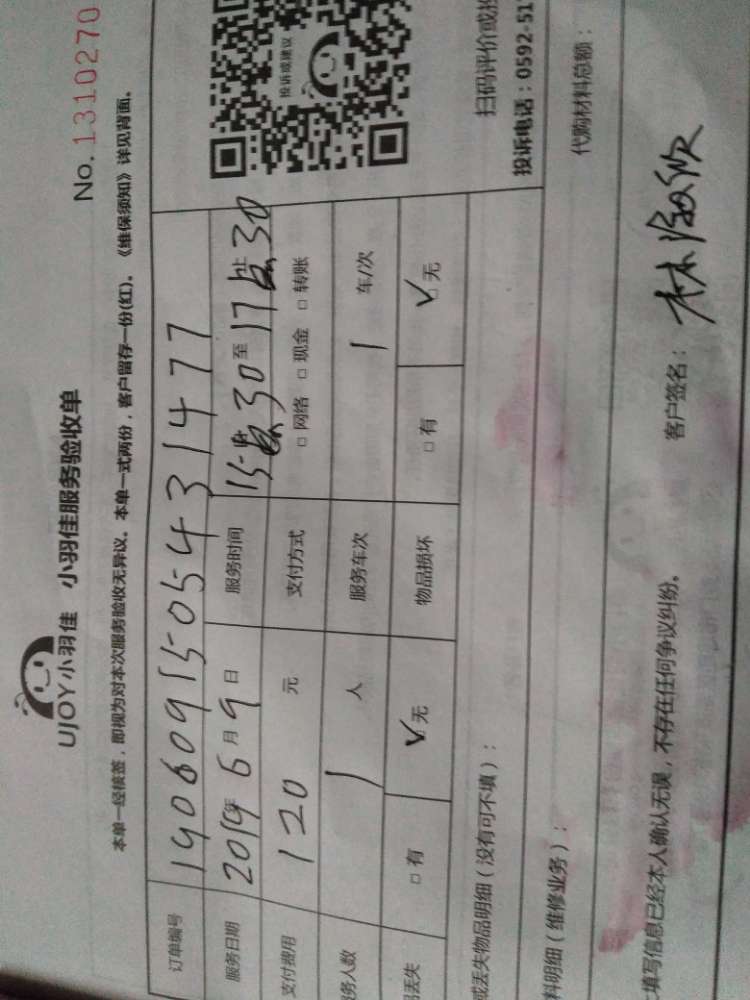 UJOY小羽佳 小羽佳服务验收单
No. 1310270
本单一经核签，即视为对本次服务验收无异议。本单一式两份，客户留存一份(红)。《维保须知》详见背面。
订单编号 1906091505431477
服务日期 2019年6月9日 服务时间 15 30至17 30
支付费用 120 元 支付方式 □网络 □现金 □转账
务人数 1 人 服务车次 1 车/次
丢失 □有 ☑无 物品损坏 □有 ☑无
投诉或建议
扫码评价或投
投诉电话：0592-517
或丢失物品明细（没有可不填）：
料明细（维修业务）：
代购材料总额：
填写信息已经本人确认无误，不存在任何争议纠纷。
客户签名：